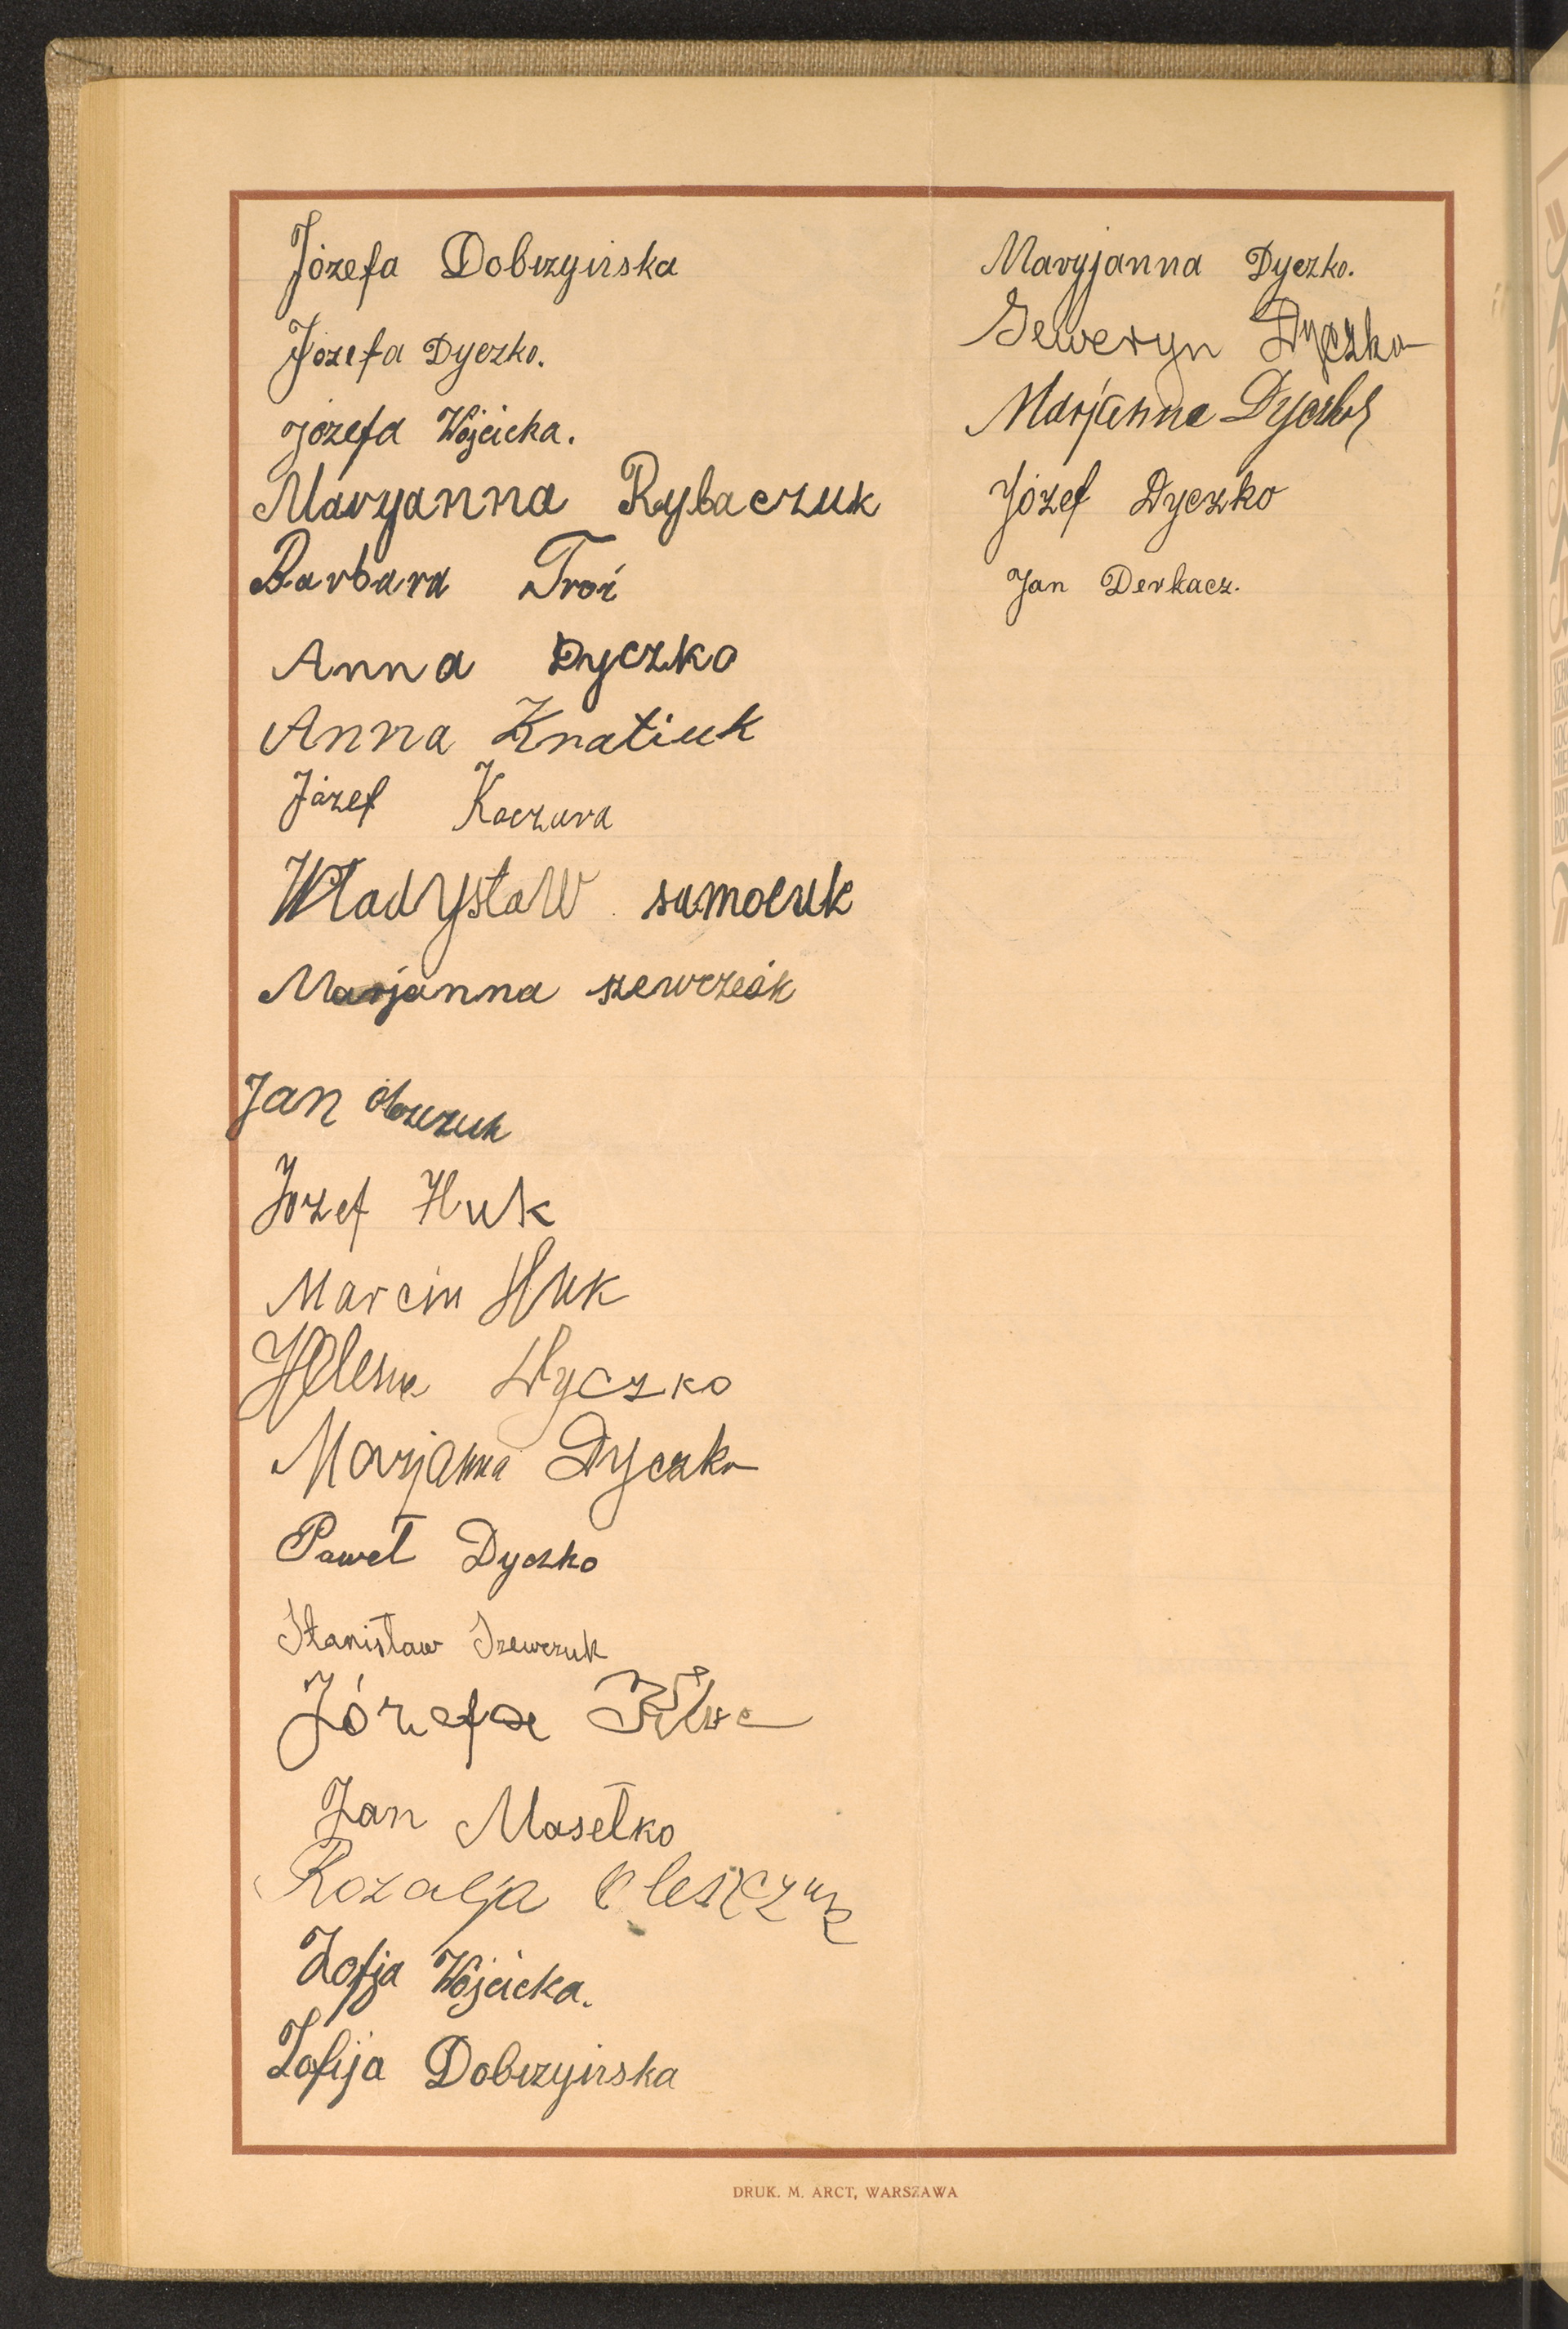 Józefa Dobrzyńska
Józefa Dyczko.
józefa Wójcicka.
Maryanna Rybaczuk
Barbara Troć
Anna Dyczko
Anna Knatiuk
Józef Kaczura
Władysław samociuk
Marjanna szewcz
Jan
Jozef Huk
Marcin Huk
Helena Dyczko
Marjanna Dyczko
Paweł Dyczko
Stanisław Szewczuk
Józefa
Jan Masełko
Rozalja Oleszczuk
Zofja Wójcicka.
Zofija Dobrzyńska
Maryjanna Dyczko.
Seweryn Dyczko
Marjanna Dyczko
Józef Dyczko
Jan Derkacz.
DRUK. M. ARCT, WARSZAWA